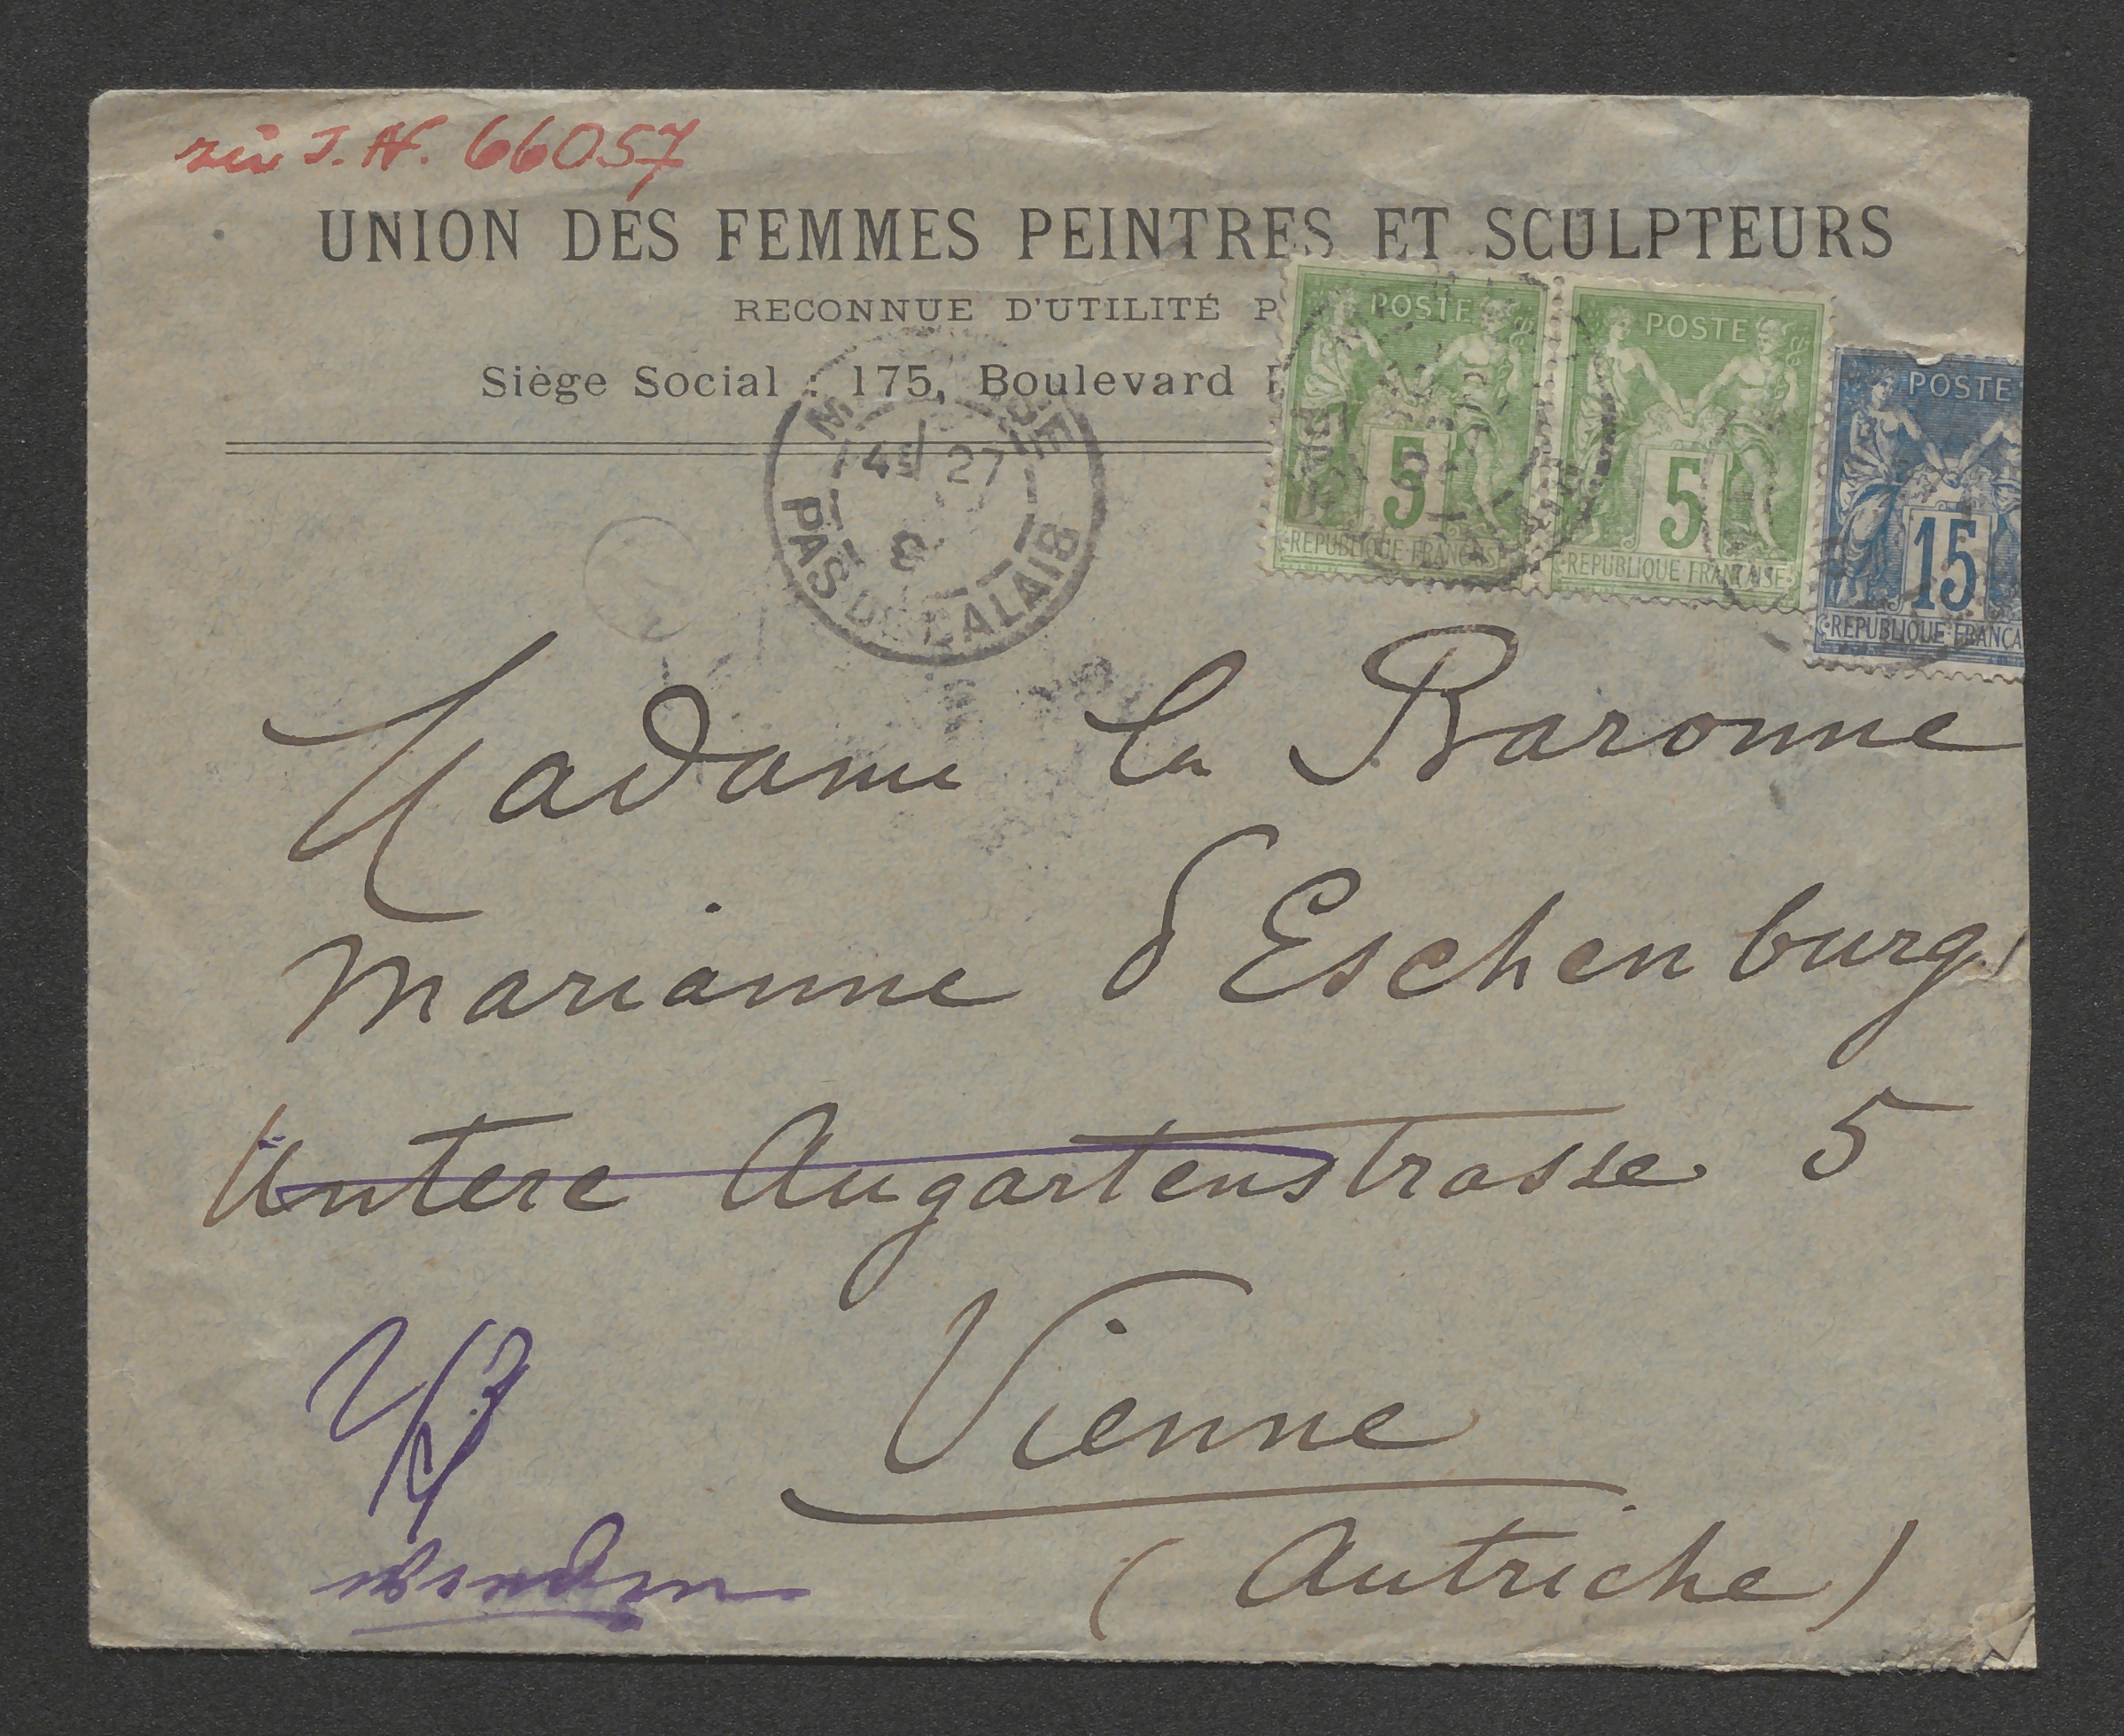 zu J.N. 66057
UNION DES FEMMES PEINTRES ET SCULPTEURS
RECONNUE D'UTILITÉ P
Siège Social : 175, Boulevard
POSTE
5
REPUBLIQUE FRANÇAISE
POSTE
5
REPUBLIQUE FRANÇAISE
POSTE
15
REPUBLIQUE FRANÇA
27
PAS DE CALAIS
Madame la Baronne
Marianne d'Eschenburg
Untere Augartenstrasse 5
Vienne
(Autriche)
wenden